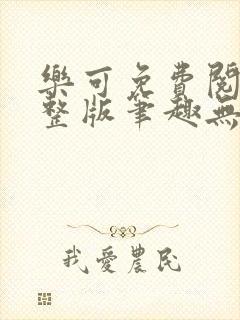 樂可免費閱
整版筆趣無
我愛農民